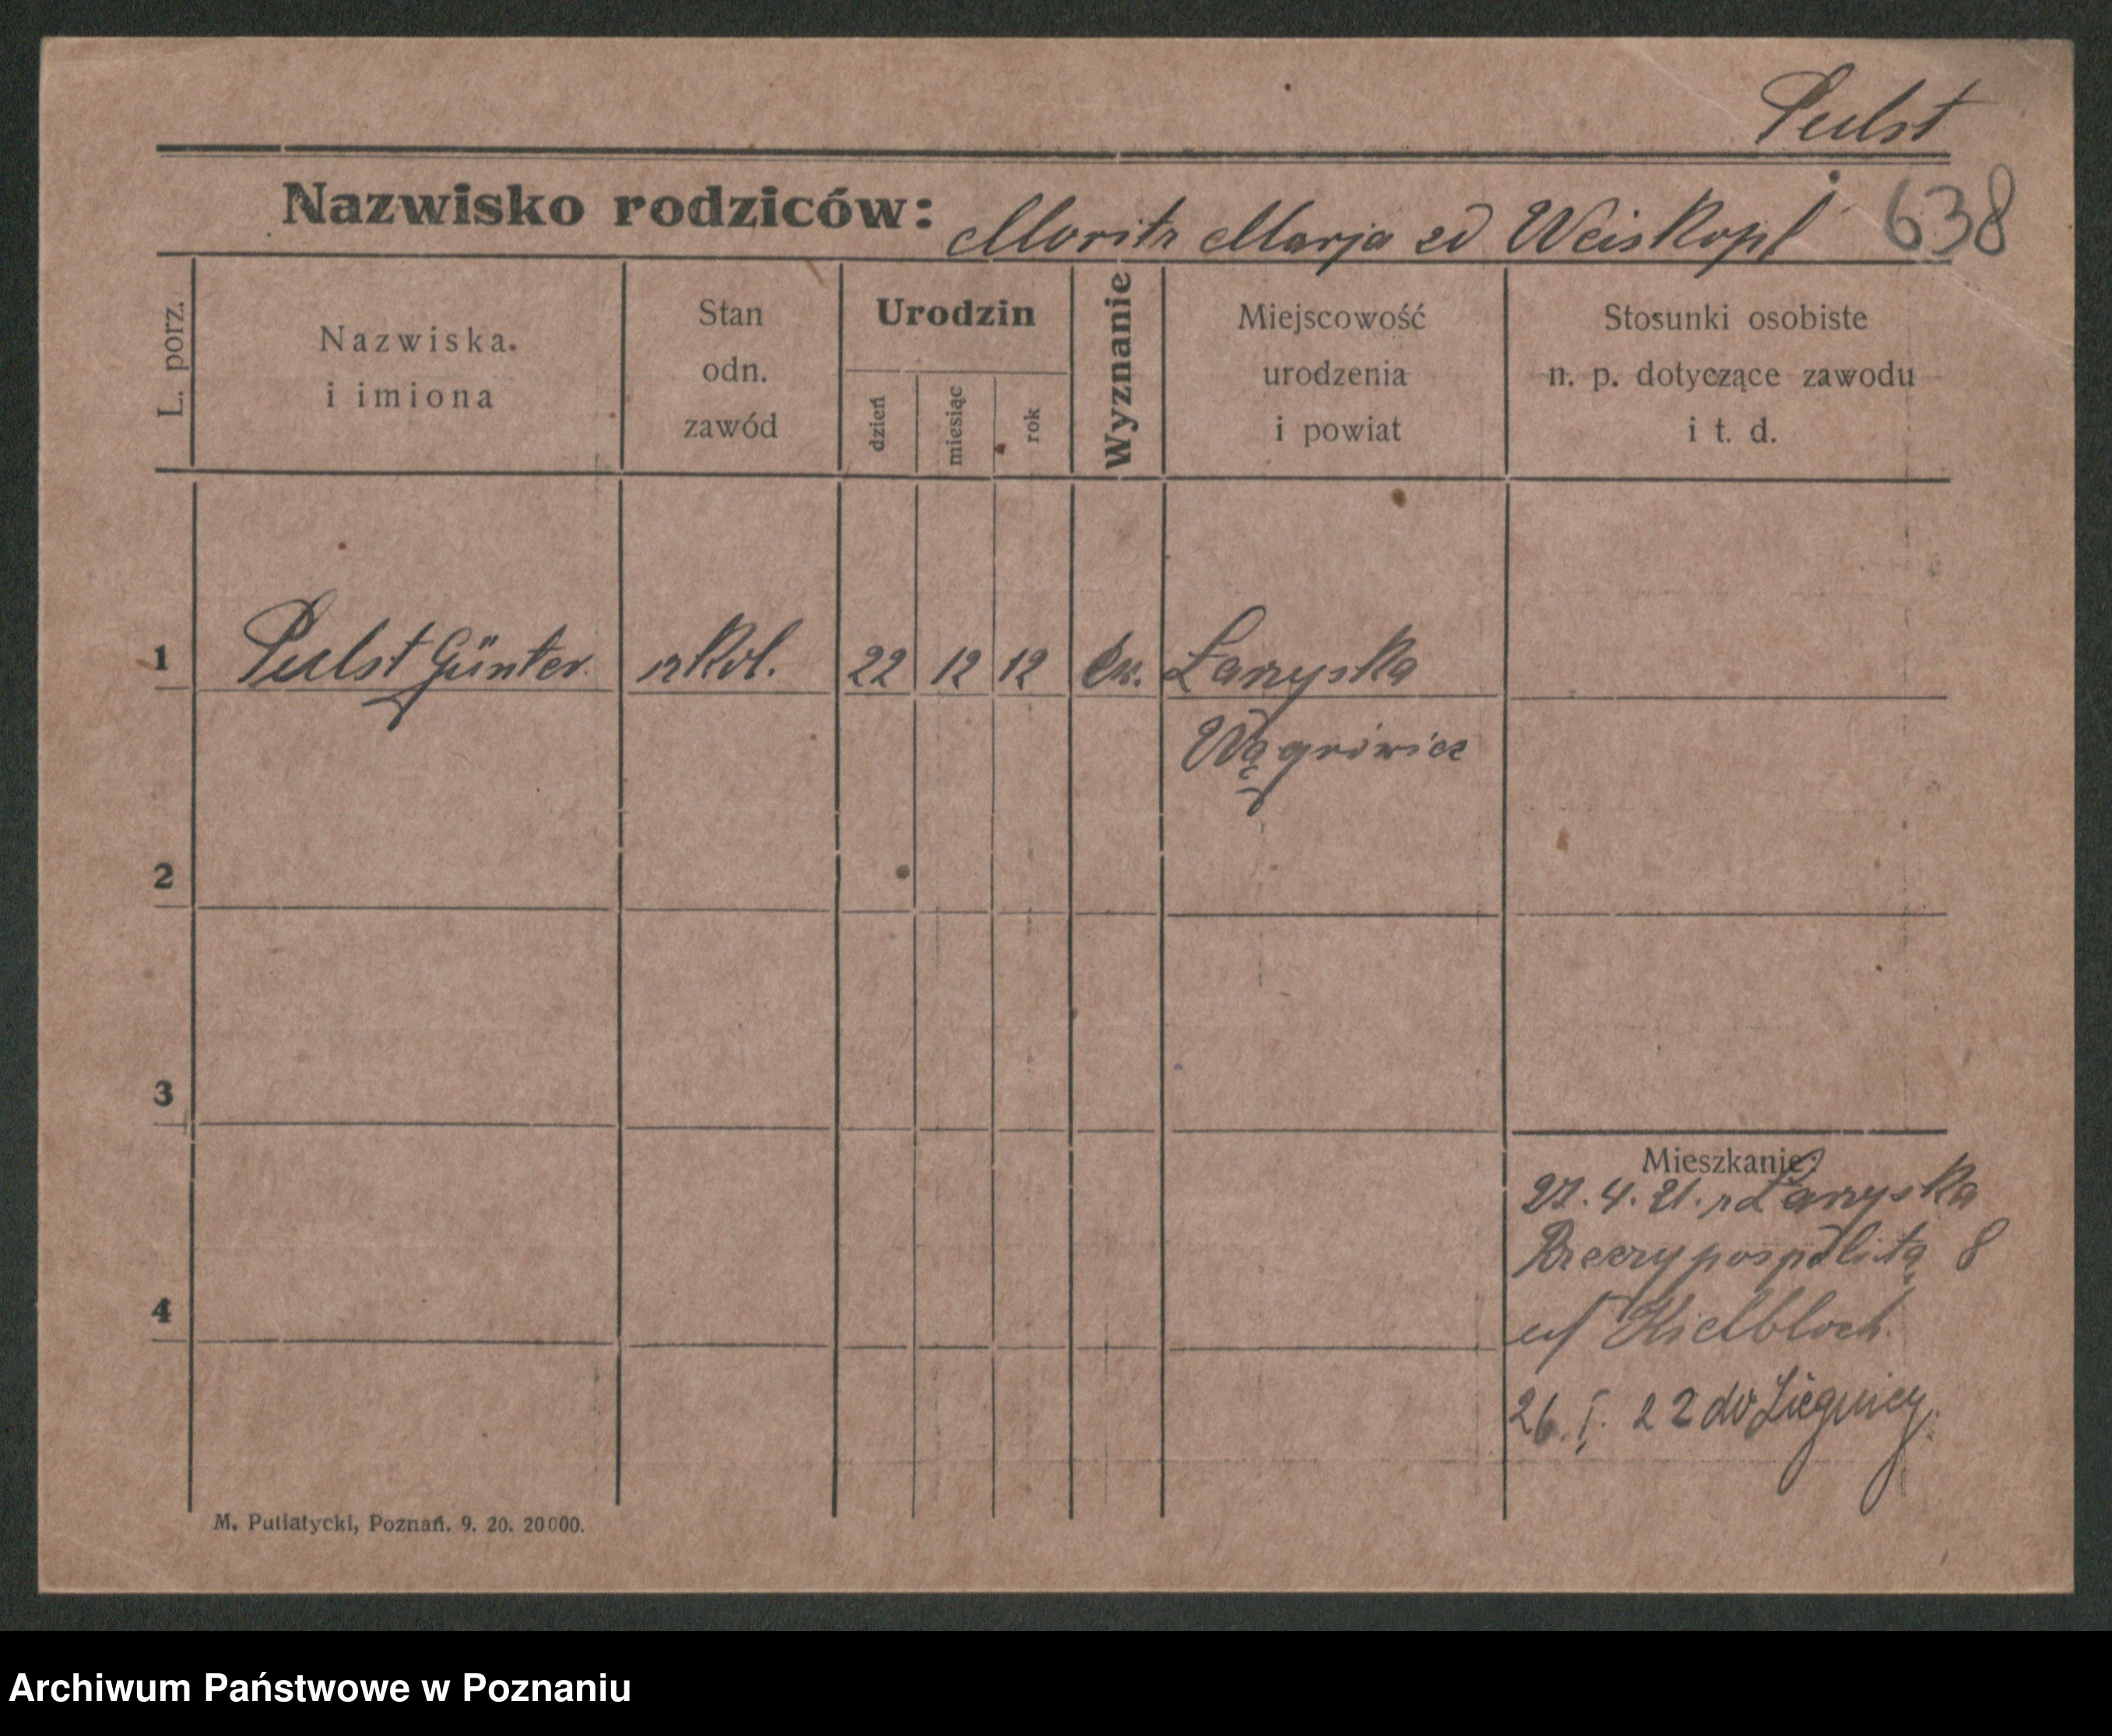 Pulst
Nazwisko rodziców: Moritz Marja zd Weiskopf 638
L. porz.
Nazwiska i imiona
Stan odn. zawód
Urodzin
dzień miesiąc rok
Wyznanie
Miejscowość urodzenia i powiat
Stosunki osobiste n. p. dotyczące zawodu i t. d.
1 Pulst Günter szkol. 22 12 12 Ew. Łazyska
Wągrówiec
2
3
Mieszkanie:
27. 4. 21. z Łazyska
Rzeczypospolitą 8
u/ Hielbloch
4
26. I. 22 do Liegnicy.
M. Putiatycki, Poznań. 9. 20. 20000.
Archiwum Państwowe w Poznaniu